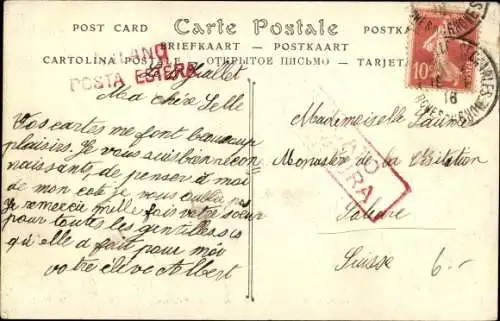 POST CARD Carte Postale POSTKA
BRIEFKAART - POSTKAART
CARTOLINA POSTALE - ОТКРЫТОЕ ПИСЬМО - TARJETA
MILANO
POSTA ESTERA
Ma chère Selle
Vos cartes me font beaucoup
plaisirs. Je vous suis bien recon
naissants, de penser à moi
de mon coté je vous oublie pas
Je remercie mille fois votre soeur
pour toutes les gentillesses
qu'elle a fait pour moi
votre élève Albert
10
16
Mademoiselle Laure
Monastère de la Visitation
Soleure
Suisse
6.-